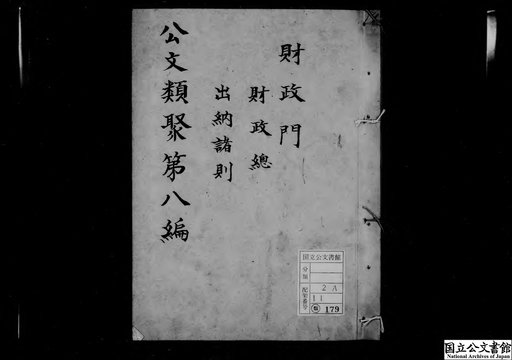 財政門
財政總
出納諸則
公文類聚第八編
国立公文書館
分類
配架番号
2 A
11
179
国立公文書館
National Archives of Japan